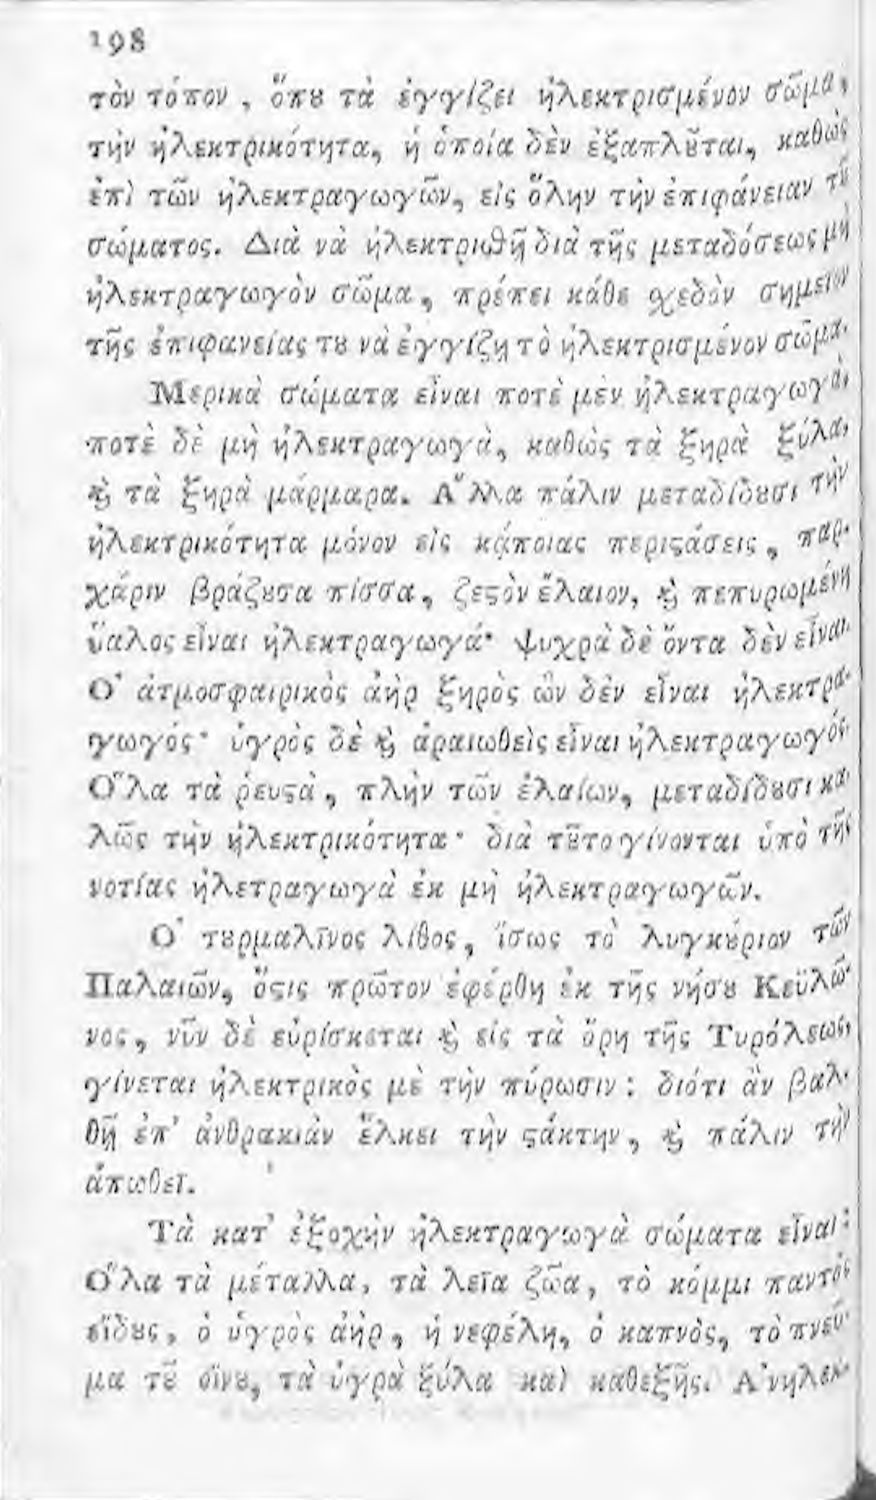 198
τὸν τόπον, ὅπȣ τὰ ἐγγίζει ἠλεκτρισμένον σῶμα,
τὴν ἠλεκτρικότητα, ἡ ὁποία δὲν ἐξαπλȣ͂ται, καθὼς
ἐπὶ τῶν ἠλεκτραγωγῶν, εἰς ὅλην τὴν ἐπιφάνειαν τȣ͂
σώματος. Διὰ νὰ ἠλεκτριϑῇ διὰ τῆς μεταδόσεως μὴ
ἠλεκτραγωγὸν σῶμα, πρέπει κάθε σχεδὸν σημεῖον
τῆς ἐπιφανείας τȣ νὰ ἐγγίζῃ τὸ ἠλεκτρισμένον σῶμα.
Μερικὰ σώματα εἶναι ποτὲ μὲν ἠλεκτραγωγὰ,
ποτὲ δὲ μὴ ἠλεκτραγωγὰ, καθὼς τὰ ξηρὰ ξύλα,
ϗ̀ τὰ ξηρὰ μάρμαρα. Α῎λλα πάλιν μεταδίδȣσι τὴν
ἠλεκτρικότητα μόνον εἰς κᾄποιας περιϛάσεις, παρ-
χάριν βράζȣσα πίσσα, ζεϛὸν ἔλαιον, ϗ̀ πεπυρωμένη
ὕαλος εἶναι ἠλεκτραγωγά· ψυχρὰ δὲ ὄντα δὲν εἶναι.
Ο῾ ἀτμοσφαιρικὸς ἀὴρ ξηρὸς ὢν δὲν εἶναι ἠλεκτρα-
γωγός· ὑγρὸς δὲ ϗ̀ ἀραιωθεὶς εἶναι ἠλεκτραγωγός.
Ο῞λα τὰ ῥευϛὰ, πλὴν τῶν ἐλαίων, μεταδίδȣσι κα-
λῶς τὴν ἠλεκτρικότητα· διὰ τȣ͂το γίνονται ὑπὸ τῆς
νοτίας ἠλετραγωγὰ ἐκ μὴ ἠλεκτραγωγῶν.
Ο῾ τȣρμαλῖνος λίθος, ἴσως τὸ λυγκȣ́ριον τῶν
Παλαιῶν, ὅϛις πρῶτον ἐφέρθη ἐκ τῆς νήσȣ Κεϋλῶ-
νος, νῦν δὲ εὑρίσκεται ϗ̀ εἰς τὰ ὄρη τῆς Τυρόλεως,
γίνεται ἠλεκτρικὸς μὲ τὴν πύρωσιν: διότι ἂν βαλ-
θῇ ἐπ' ἀνθρακιὰν ἕλκει τὴν ϛάκτην, ϗ̀ πάλιν τὴν
ἀπωθεῖ.
Τὰ κατ' ἐξοχὴν ἠλεκτραγωγὰ σώματα εἶναι:
Ο῞λα τὰ μέταλλα, τὰ λεῖα ζῶα, τὸ κόμμι παντὸς
εἴδȣς, ὁ ὑγρὸς ἀὴρ, ἡ νεφέλη, ὁ καπνὸς, τὸ πνεῦ-
μα τȣ͂ οἴνȣ, τὰ ὑγρὰ ξύλα καὶ καθεξῆς. Α᾿νηλεκ-